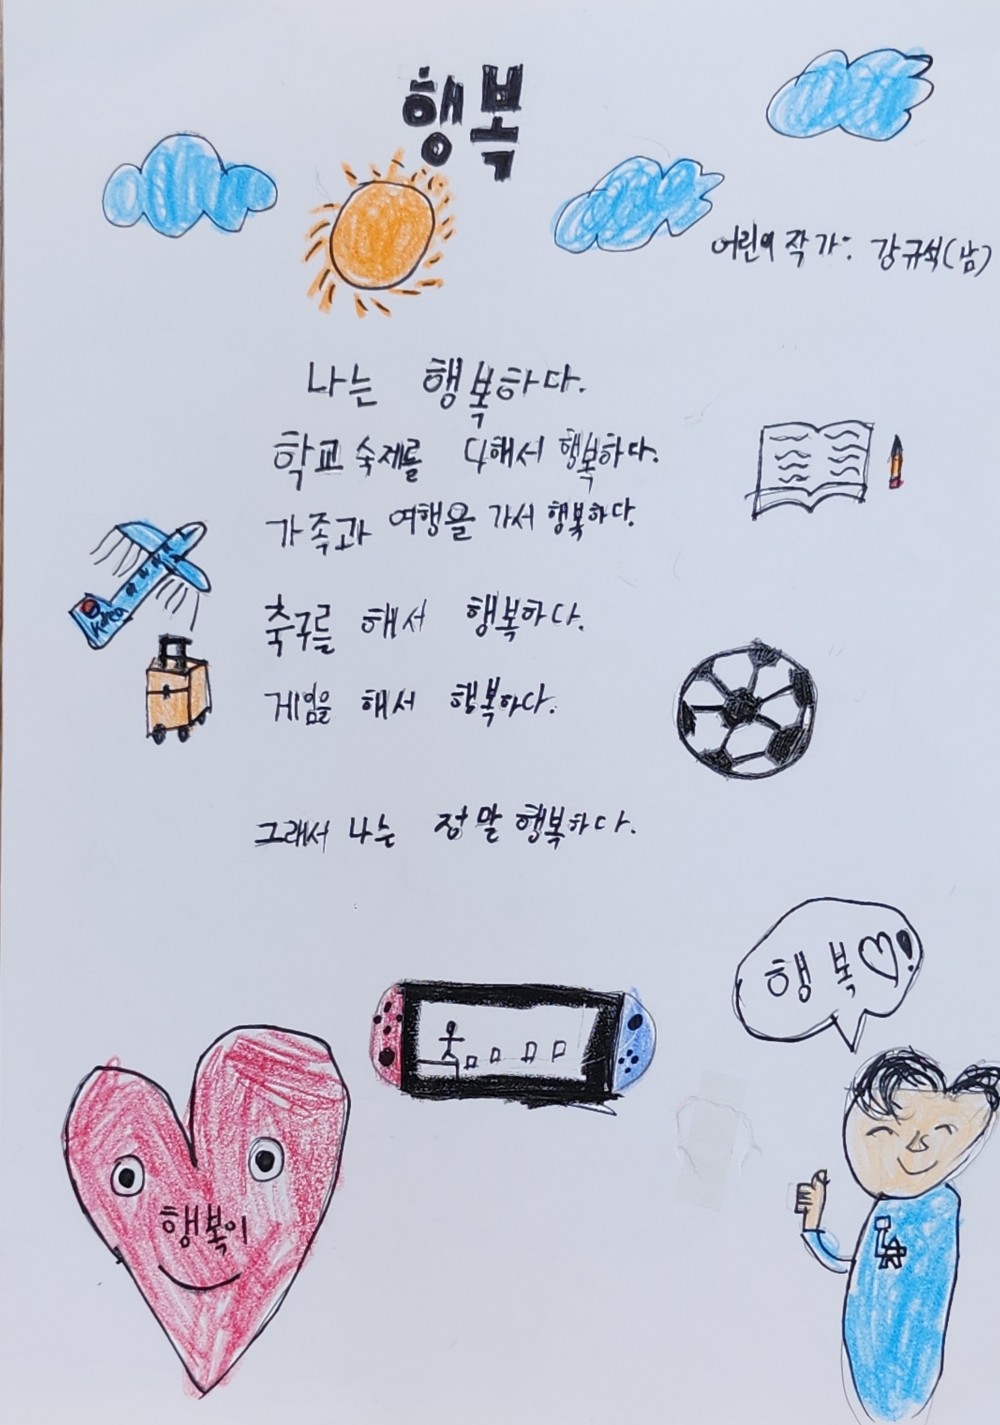 행복
어린이 작가: 강규석(남)
나는 행복하다.
학교 숙제를 다해서 행복하다.
가족과 여행을 가서 행복하다.
Korea
축구를 해서 행복하다.
게임을 해서 행복하다.
그래서 나는 정말 행복하다.
행복♡!
행복이
LA